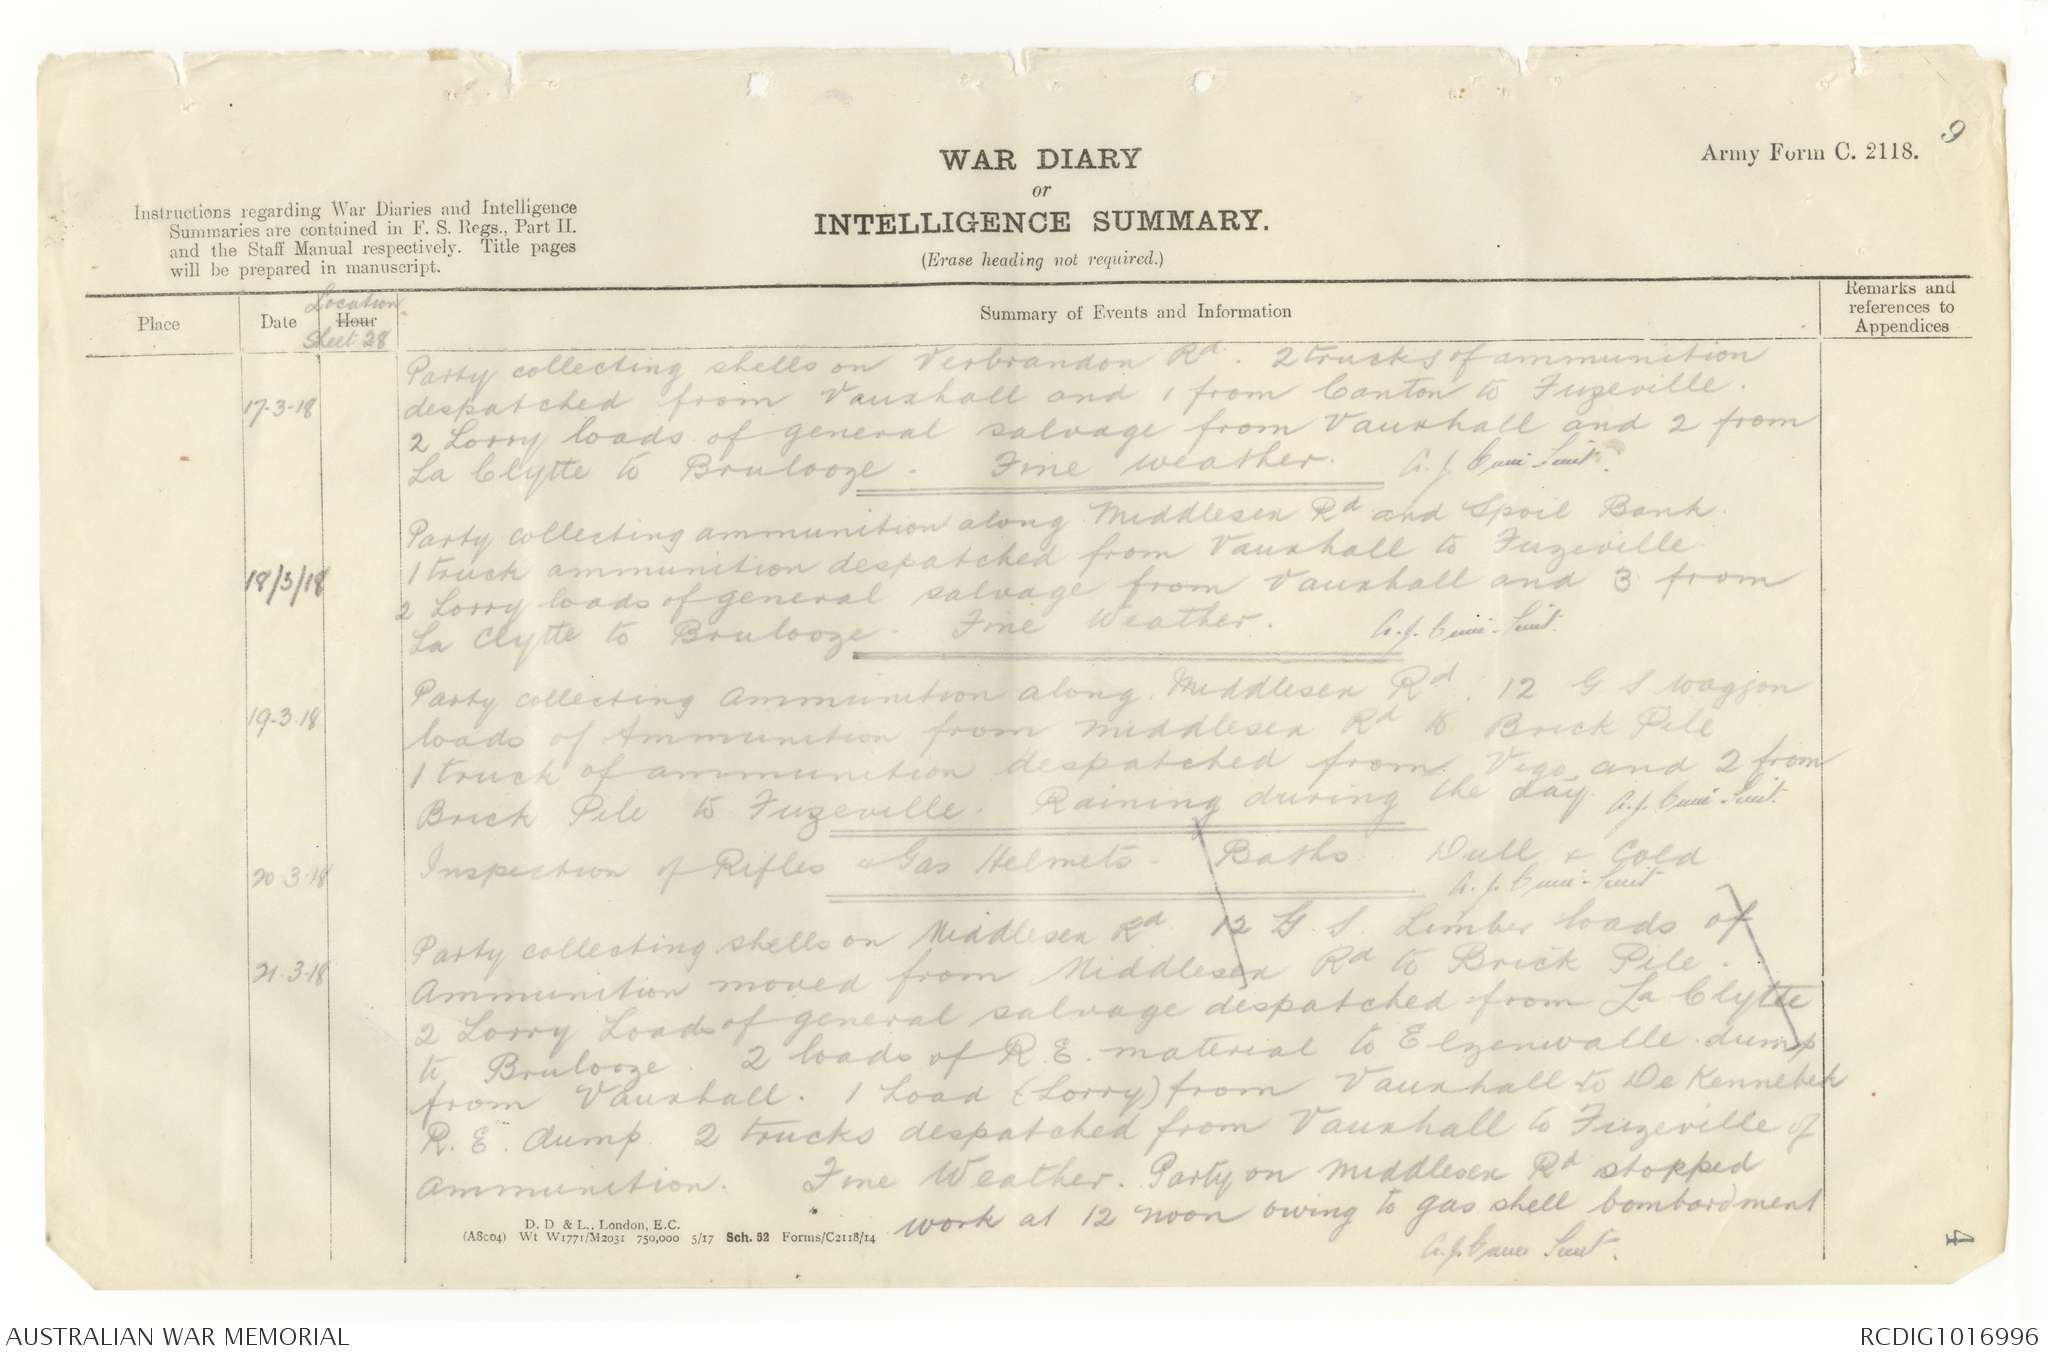 9
Army Form C. 2118.
WAR DIARY
or
INTELLIGENCE SUMMARY.
(Erase heading not required.)
Instructions regarding War Diaries and Intelligence
Summaries are contained in F. S. Regs., Part II.
and the Staff Manual respectively. Title pages
will be prepared in manuscript.
Place
Date
Location
Hour
Sheet 28
Summary of Events and Information
Remarks and
references to
Appendices
17-3-18
Party collecting shells on Verbrandon Rd. 2 trucks of ammunition
despatched from Vauxhall and 1 from Canton to Fuzeville.
2 Lorry loads of general salvage from Vauxhall and 2 from
La Clytte to Brulooze. Fine weather. A. J.
18/3/18
Party collecting ammunition along Middlesex Rd and Spoil Bank.
1 truck ammunition despatched from Vauxhall to Fuzeville
2 Lorry loads of general salvage from Vauxhall and 3 from
La Clytte to Brulooze. Fine Weather. A. J.
19-3-18
Party collecting ammunition along Middlesex Rd. 12 G S Waggon
loads of Ammunition from Middlesex Rd to Brick Pile
1 truck of ammunition despatched from Vigo and 2 from
Brick Pile to Fuzeville. Raining during the day. A. J.
20-3-18
Inspection of Rifles & Gas Helmets. Baths. Dull & Cold
A. J.
21-3-18
Party collecting shells on Middlesex Rd. 12 G. S. Limber loads of
Ammunition moved from Middlesex Rd to Brick Pile.
2 Lorry Loads of general salvage despatched from La Clytte
to Brulooze. 2 loads of R.E. material to Elzenwalle dump
from Vauxhall. 1 Load (Lorry) from Vauxhall to De Kennebek
R. E. dump. 2 trucks despatched from Vauxhall to Fuzeville of
Ammunition. Fine Weather. Party on Middlesex Rd stopped
work at 12 noon owing to gas shell bombardment
A. J.
D. D & L., London, E.C.
(A8004) Wt W1771/M2031 750,000 5/17 Sch. 52 Forms/C2118/14
4
AUSTRALIAN WAR MEMORIAL
RCDIG1016996